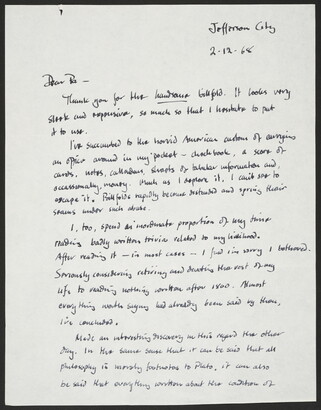 Jefferson City
2-12-68
Dear Bo —
Thank you for the handsome billfold. It looks very
sleek and expensive, so much so that I hesitate to put
it to use.
I've succumbed to the horrid American custom of carrying
an office around in my pocket — checkbook, a score of
cards, notes, calendar, sheets of tabular information and,
occasionally, money. Much as I deplore it, I can't seem to
escape it. Billfolds rapidly become distended and spring their
seams under such abuse.
I, too, spend an inordinate proportion of my time
reading badly written trivia related to my livelihood.
After reading it — in most cases — I find I'm sorry I bothered.
Seriously considering retiring and devoting the rest of my
life to reading nothing written after 1800. Almost
everything worth saying had already been said by then,
I've concluded.
Made an interesting discovery in this regard the other
day. In the same sense that it can be said that all
philosophy is merely footnotes to Plato, it can also
be said that everything written about the condition of